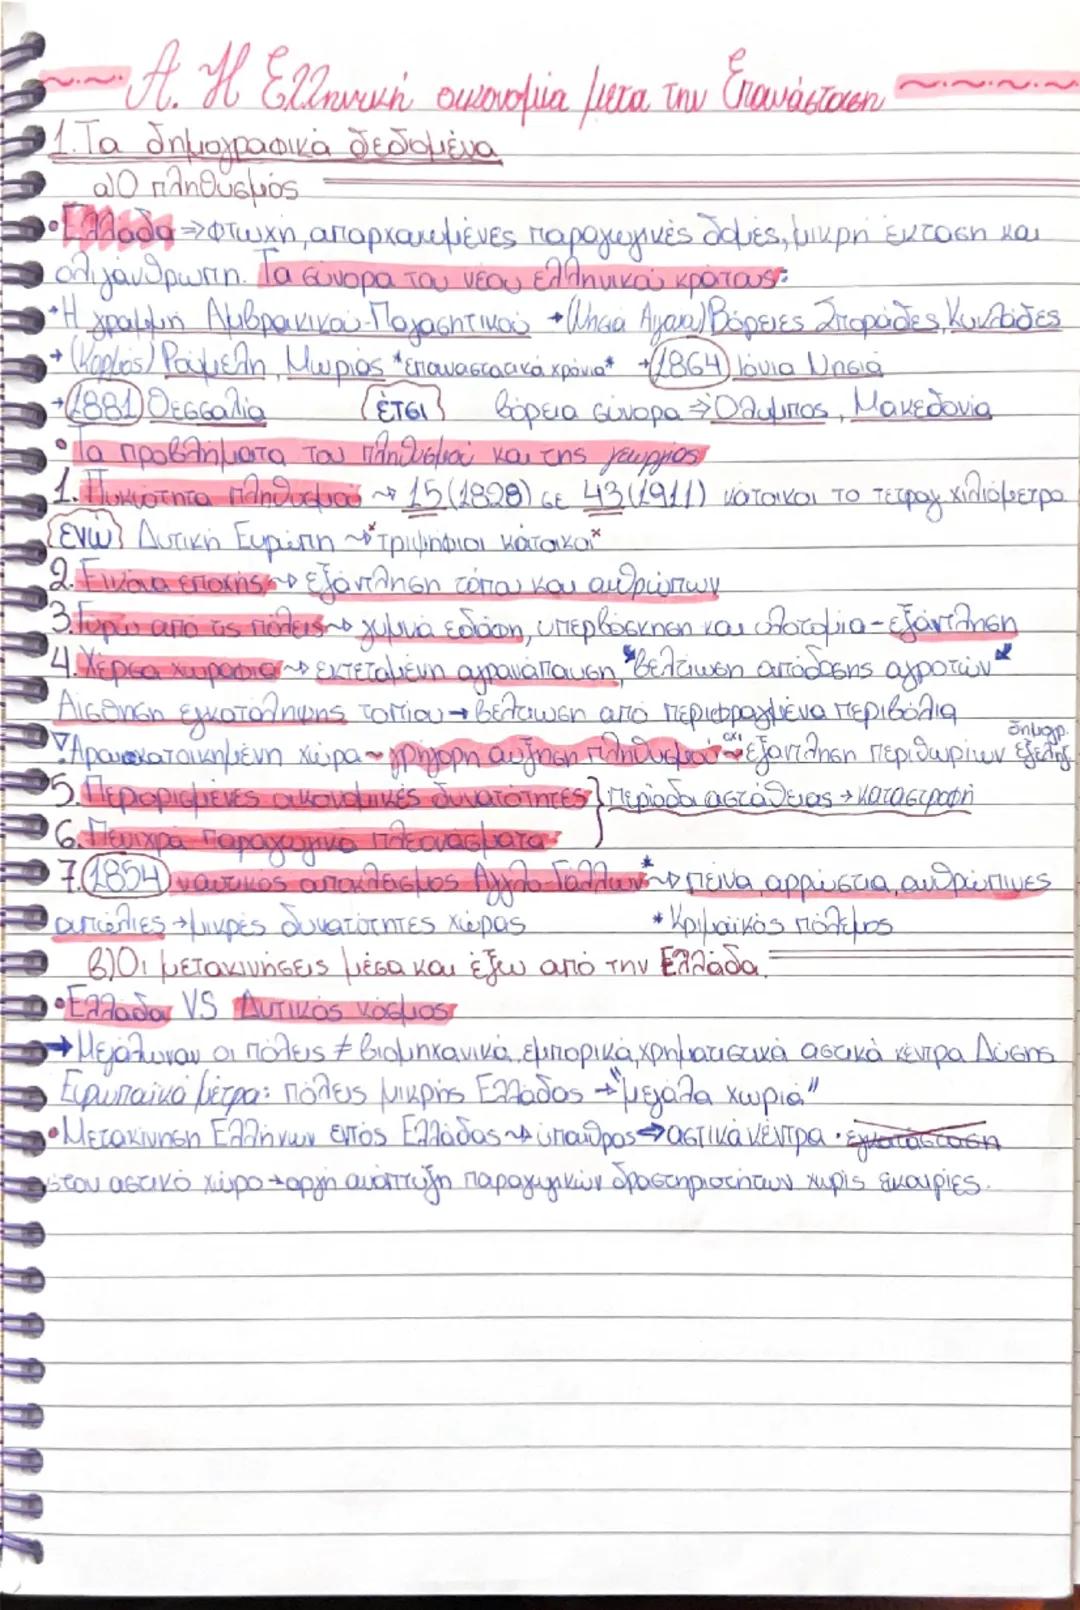 Α. Η Ελληνική οικονομία μετα την Επανάσταση
1. Τα δημογραφικά δεδομένα
α) Ο πληθυσμός
• Ελλάδα ⇒ φτωχή, απαρχαιωμένες παραγωγικές δομές, μικρή έκταση και
ολιγάνθρωπη. Τα σύνορα του νέου ελληνικού κράτους:
→ Η γραμμή Αμβρακικού-Παγασητικού → (Νησιά Αιγαίου) Βόρειες Σποράδες, Κυκλάδες
→ (Κορμός) Ρούμελη, Μωριάς *επαναστατικά χρόνια* → 1864 Ιόνια Νησιά
→ 1881 Θεσσαλία έτσι βόρεια σύνορα ⇒ Όλυμπος, Μακεδονία
• Τα προβλήματα του πληθυσμού και της γεωργίας
1. Πυκνότητα πληθυσμού → 15 (1828) σε 43 (1911) κάτοικοι το τετραγ. χιλιόμετρο
ενώ Δυτική Ευρώπη → *τριψήφιοι κάτοικοι*
2. Εικόνα εποχής → εξάντληση τόπου και ανθρώπων
3. Γύρω από τις πόλεις → γυμνά εδάφη, υπερβόσκηση και υλοτομία - εξάντληση
4. Χέρσα χωράφια → εκτεταμένη αγρανάπαυση, "βελτίωση απόδοσης αγροτών"
Αίσθηση εγκατάλειψης τοπίου → βελτίωση από περιφραγμένα περιβόλια
Αραιοκατοικημένη χώρα ~ γρήγορη αύξηση πληθυσμού όχι → εξάντληση περιθωρίων δημογρ. εξέλιξ.
5. Περιορισμένες οικονομικές δυνατότητες } περίοδοι αστάθειας → καταστροφή
6. Πενιχρά παραγωγικά πλεονάσματα
7. 1854 ναυτικός αποκλεισμός Αγγλο-Γάλλων* → πείνα, αρρώστια, ανθρώπινες
απώλειες → μικρές δυνατότητες χώρας * Κριμαϊκός πόλεμος
β) Οι μετακινήσεις μέσα και έξω από την Ελλάδα.
• Ελλάδα VS Δυτικός κόσμος
→ Μεγάλωναν οι πόλεις ≠ βιομηχανικά, εμπορικά, χρηματιστικά αστικά κέντρα Δύσης
Ευρωπαϊκά μέτρα: πόλεις μικρής Ελλάδας → "μεγάλα χωριά"
• Μετακίνηση Ελλήνων εντός Ελλάδας → ύπαιθρος ⇒ αστικά κέντρα · εγκατάσταση
στον αστικό χώρο → αργή ανάπτυξη παραγωγικών δραστηριοτήτων χωρίς ευκαιρίες.